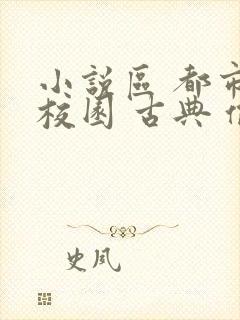 小說區 都市
校園 古典
史夙